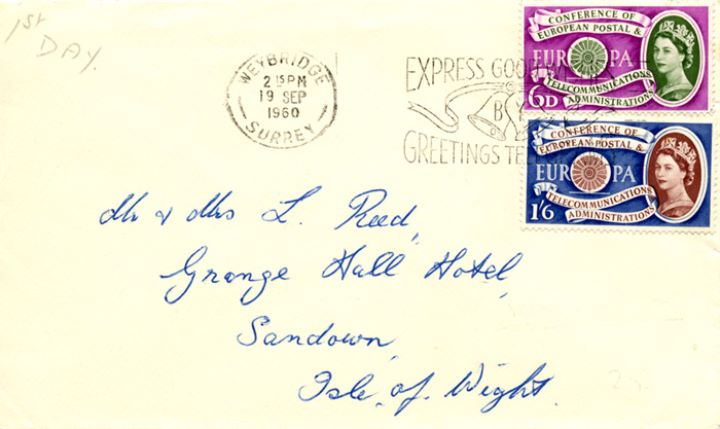 1st
DAY.
WEYBRIDGE
2 15 PM
19 SEP
1960
SURREY
EXPRESS GOOD
B
GREETINGS TE
CONFERENCE OF
EUROPEAN POSTAL &
EUROPA
6D
TELECOMMUNICATIONS
ADMINISTRATIONS
CONFERENCE OF
EUROPEAN POSTAL &
EUROPA
1/6
TELECOMMUNICATIONS
ADMINISTRATIONS
Mr & Mrs L. Reed,
Grange Hall Hotel,
Sandown,
Isle of Wight.